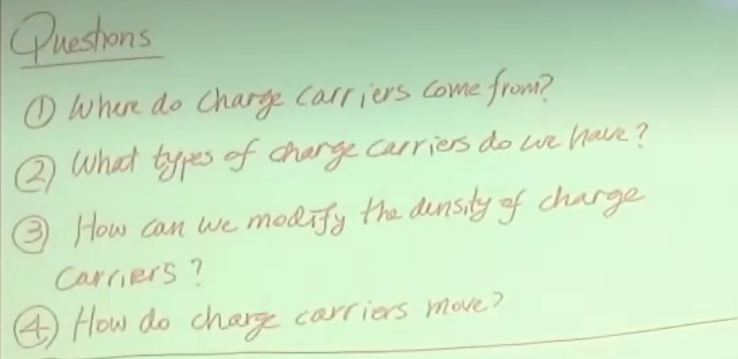 Questions
① Where do charge carriers come from?
② What types of charge carriers do we have?
③ How can we modify the density of charge
carriers?
④ How do charge carriers move?